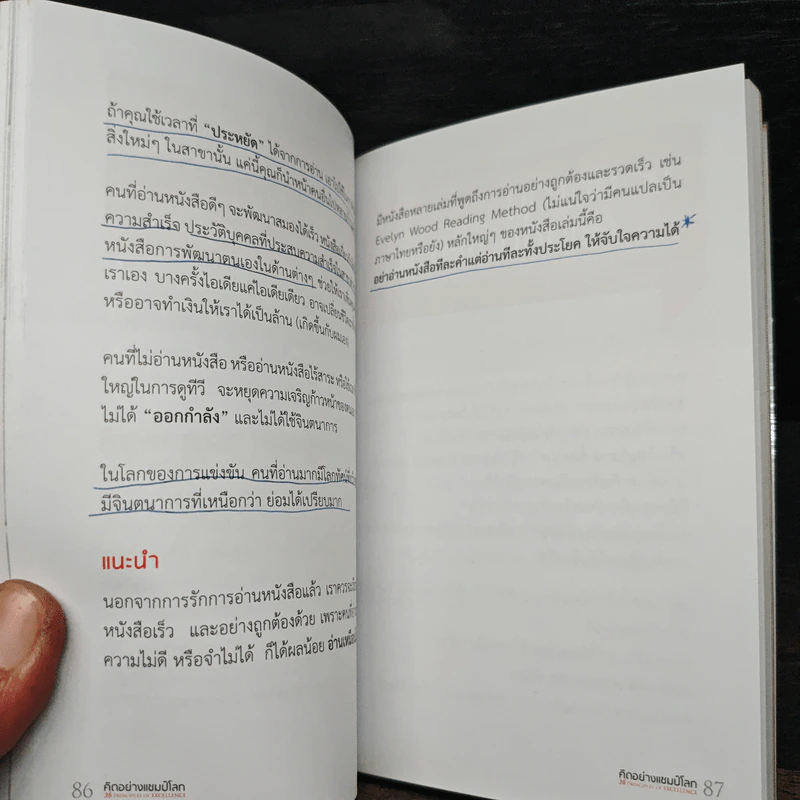 ถ้าคุณใช้เวลาที่ “ประหยัด” ได้จากการอ่าน
สิ่งใหม่ๆ ในสาขานั้น แค่นี้คุณก็นำหน้าคนอื่น
คนที่อ่านหนังสือดีๆ จะพัฒนาสมองได้เร็ว
ความสำเร็จ ประวัติบุคคลที่ประสบความสำเร็จ
หนังสือการพัฒนาตนเองในด้านต่างๆ ช่วยให้
เราเอง บางครั้งไอเดียแค่ไอเดียเดียว อาจเปลี่ยน
หรืออาจทำเงินให้เราได้เป็นล้าน (เกิดขึ้นกับผม
คนที่ไม่อ่านหนังสือ หรืออ่านหนังสือไร้สาระ
ใหญ่ในการดูทีวี จะหยุดความเจริญก้าวหน้าของ
ไม่ได้ “ออกกำลัง” และไม่ได้ใช้จินตนาการ
ในโลกของการแข่งขัน คนที่อ่านมากมีโลกทัศน์
มีจินตนาการที่เหนือกว่า ย่อมได้เปรียบมาก
แนะนำ
นอกจากการรักการอ่านหนังสือแล้ว เราควร
หนังสือเร็ว และอย่างถูกต้องด้วย เพราะ
ความไม่ดี หรือจำไม่ได้ ก็ได้ผลน้อย
86 คิดอย่างแชมป์โลก
38 PRINCIPLES OF EXCELLENCE
มีหนังสือหลายเล่มที่พูดถึงการอ่านอย่างถูกต้องและรวดเร็ว เช่น
Evelyn Wood Reading Method (ไม่แน่ใจว่ามีคนแปลเป็น
ภาษาไทยหรือยัง) หลักใหญ่ๆ ของหนังสือเล่มนี้คือ
อย่าอ่านหนังสือทีละคำแต่อ่านทีละทั้งประโยค ให้จับใจความได้
คิดอย่างแชมป์โลก 87
38 PRINCIPLES OF EXCELLENCE